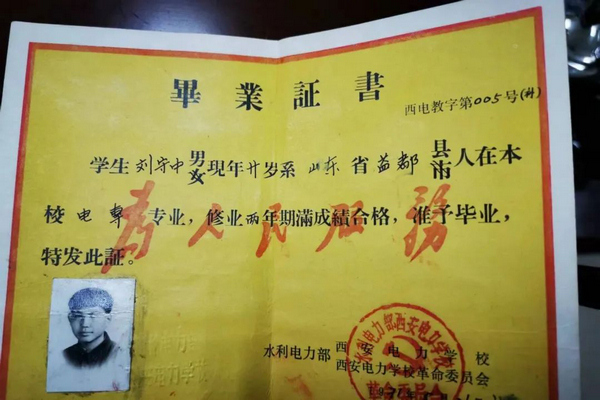 畢業証書
西电教字第005号(补)
学生刘守中男女现年廿岁系山东省益都县市人在本
校电專专业，修业两年期滿成績合格，准予毕业，
特发此証。
为人民服務
水利电力部西安电力学校
西安电力学校革命委员会
水利电力部西安电力学校
革命委员会